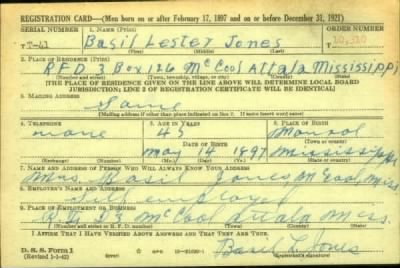 REGISTRATION CARD—(Men born on or after February 17, 1897 and on or before December 31, 1921)
SERIAL NUMBER 1. NAME (Print) ORDER NUMBER
T-41 Basil Lester Jones
(First) (Middle) (Last)
2. PLACE OF RESIDENCE (Print)
R.F.D 3 Box 126 McCool Attala Mississippi
(Number and street) (Town, township, village, or city) (County) (State)
[THE PLACE OF RESIDENCE GIVEN ON THE LINE ABOVE WILL DETERMINE LOCAL BOARD
JURISDICTION; LINE 2 OF REGISTRATION CERTIFICATE WILL BE IDENTICAL]
3. MAILING ADDRESS
Same
[Mailing address if other than place indicated on line 2. If same insert word same]
4. TELEPHONE 5. AGE IN YEARS 6. PLACE OF BIRTH
none 45
DATE OF BIRTH (Town or county)
May 14 1897 Mississippi
(Exchange) (Number) (Mo.) (Day) (Yr.) (State or country)
7. NAME AND ADDRESS OF PERSON WHO WILL ALWAYS KNOW YOUR ADDRESS
Mrs Basil Jones, McCool, Miss
8. EMPLOYER'S NAME AND ADDRESS
Self employed
9. PLACE OF EMPLOYMENT OR BUSINESS
R.F.D 3 McCool Attala Miss.
(Number and street or R. F. D. number) (Town) (County) (State)
I AFFIRM THAT I HAVE VERIFIED ABOVE ANSWERS AND THAT THEY ARE TRUE.
D. S. S. Form 1
(Revised 1-1-42) (over) Basil L. Jones